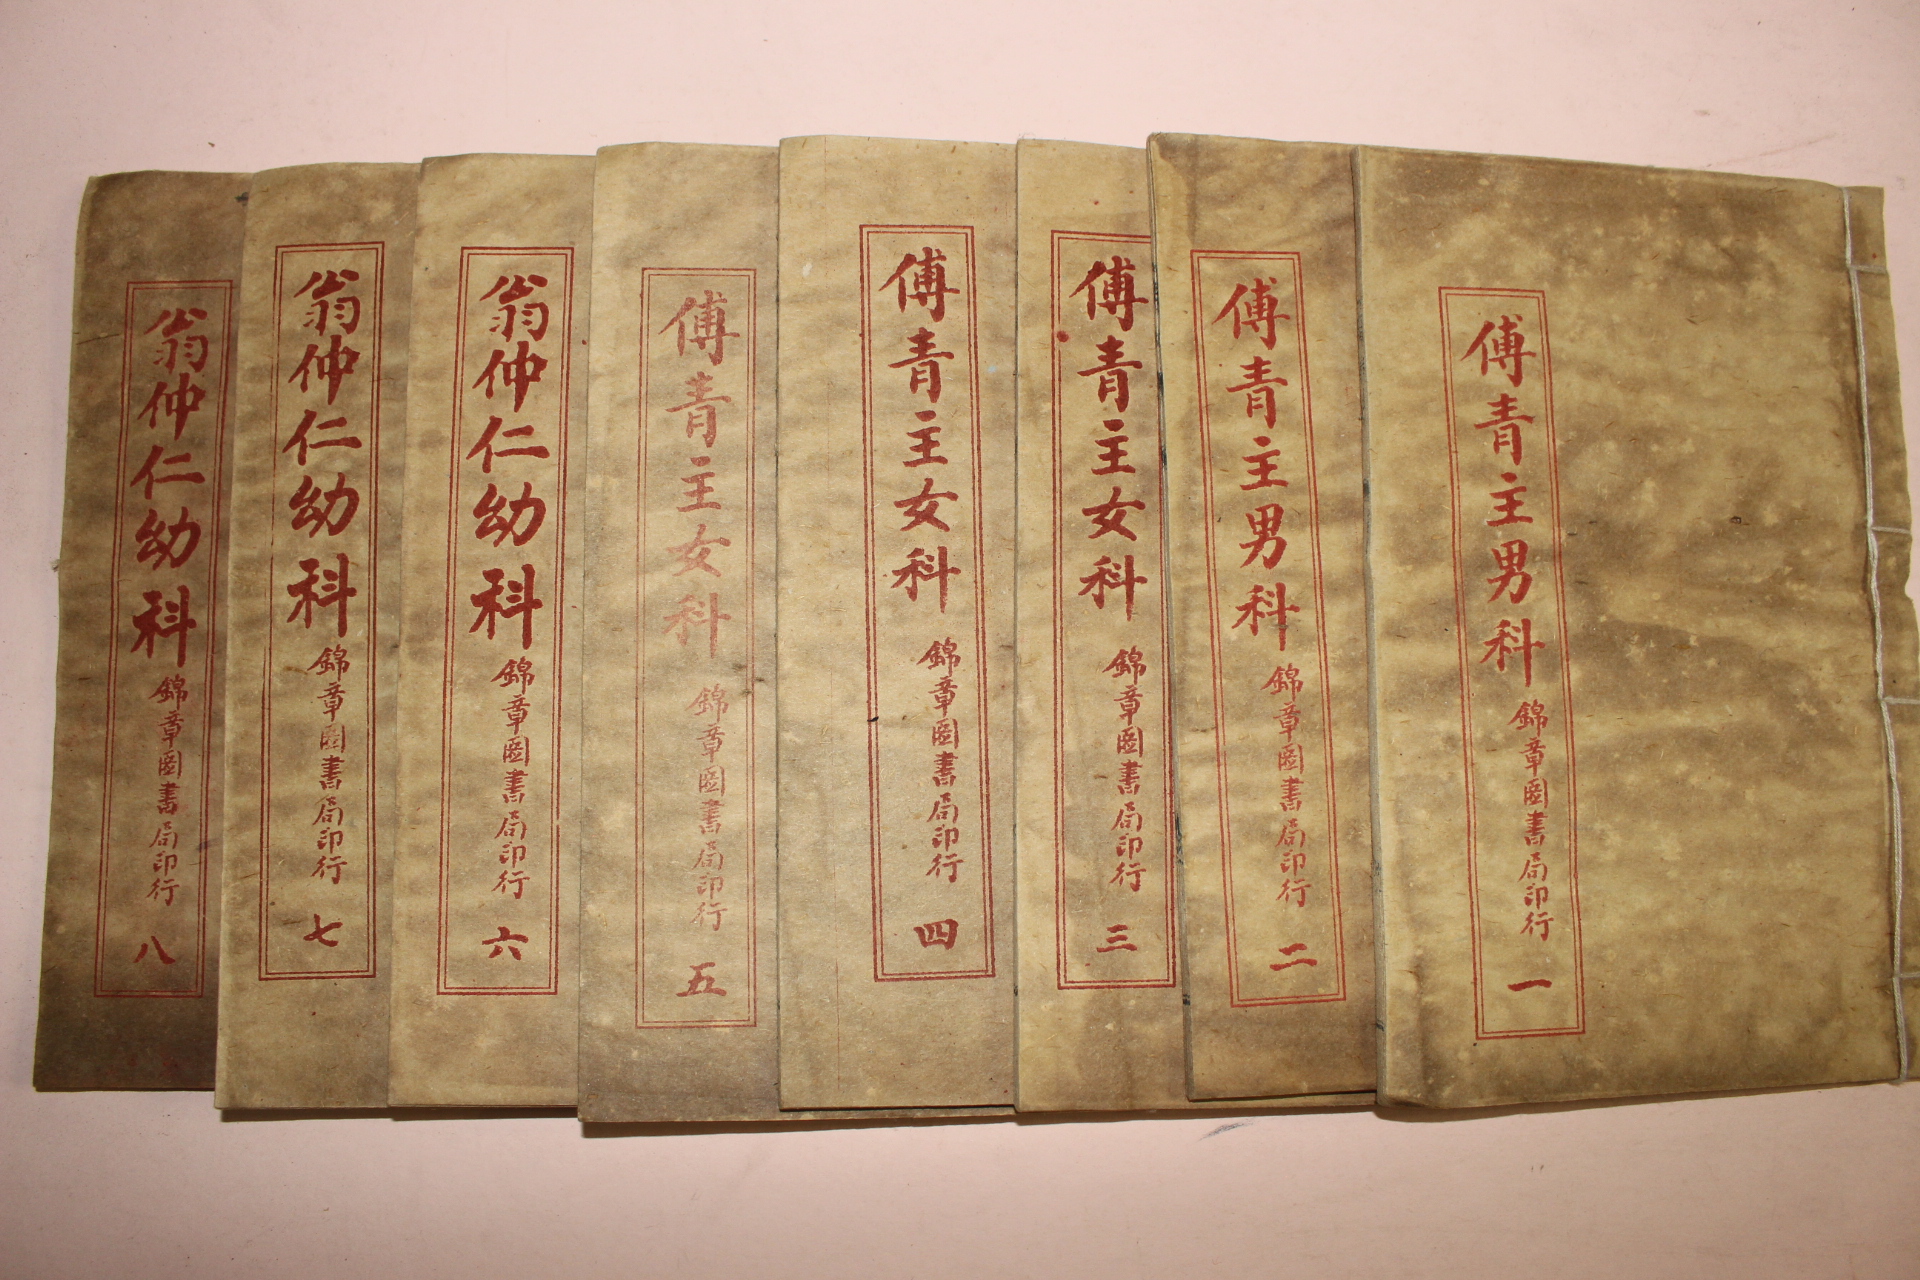 傅青主男科 錦章圖書局印行 一
傅青主男科 錦章圖書局印行 二
傅青主女科 錦章圖書局印行 三
傅青主女科 錦章圖書局印行 四
傅青主女科 錦章圖書局印行 五
翁仲仁幼科 錦章圖書局印行 六
翁仲仁幼科 錦章圖書局印行 七
翁仲仁幼科 錦章圖書局印行 八